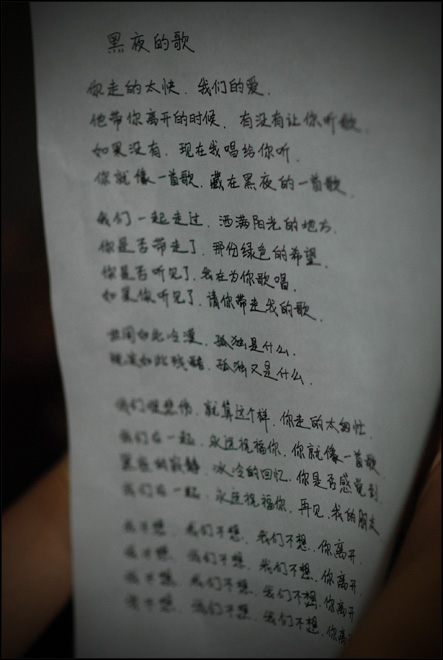 黑夜的歌
你走的太快、我们的爱、
他带你离开的时候、有没有让你听歌、
如果没有、现在我唱给你听、
你就像一首歌、藏在黑夜的一首歌、
我们一起走过、洒满阳光的地方、
你是否带走了、那份绿色的希望、
你是否听见了、我在为你歌唱、
如果你听见了、请你带走我的歌、
世间如此冷漠、孤独是什么、
现实如此残酷、孤独又是什么、
我们很悲伤、就算这个样、你走的太匆忙、
我们在一起、永远祝福你、你就像一首歌
黑夜的寂静、冰冷的回忆、你是否感觉到
我们在一起、永远祝福你、再见、我的朋友
我不想、我们不想、我们不想、你离开、
我不想、我们不想、我们不想、你离开、
我不想、我们不想、我们不想、你离开
我不想、我们不想、我们不想、你离